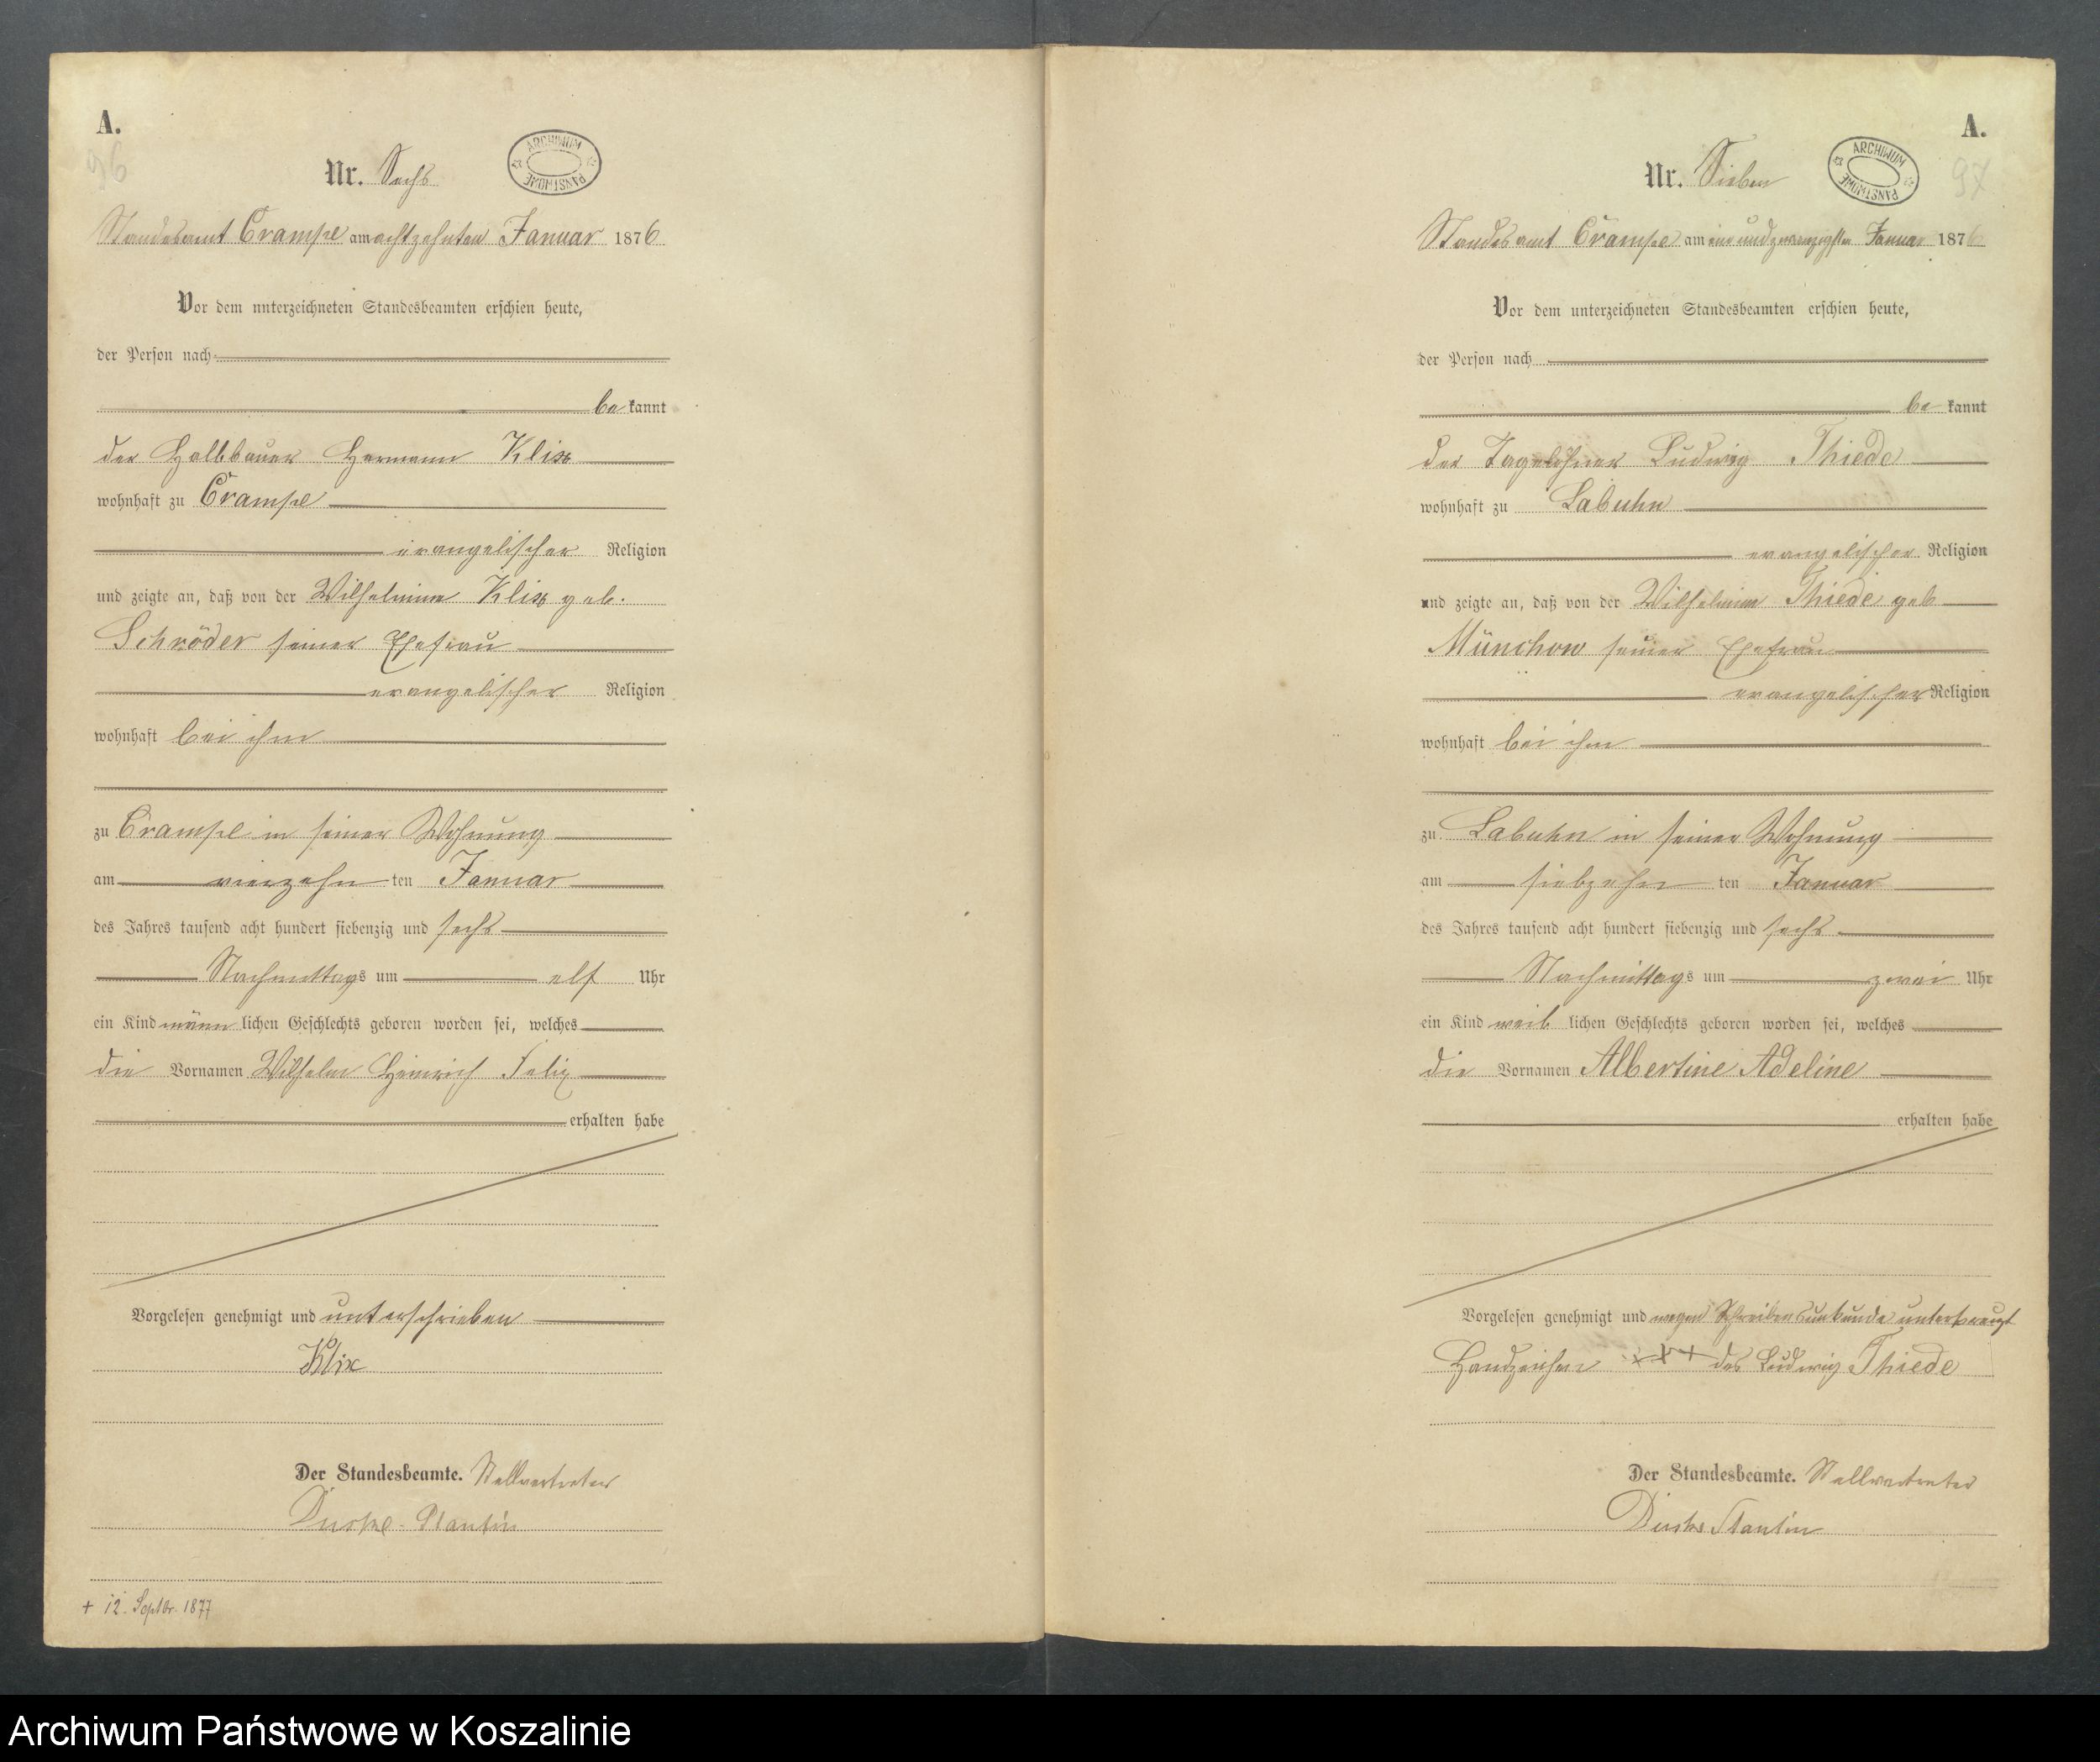 A.
96
Nr. Sechs
ARCHIWUM PAŃSTWOWE
Standesamt Crampe am achtzehnten Januar 1876
Vor dem unterzeichneten Standesbeamten erschien heute,
der Person nach
be kannt
der Halbbauer Hermann Klix
wohnhaft zu Crampe
evangelischer Religion
und zeigte an, daß von der Wilhelmine Klix geb.
Schröder seiner Ehefrau
evangelischer Religion
wohnhaft bei ihm
zu Crampe in seiner Wohnung
am vierzehn ten Januar
des Jahres tausend acht hundert siebenzig und sechs
Nachmittags um elf Uhr
ein Kind männ lichen Geschlechts geboren worden sei, welches
die Vornamen Wilhelm Heinrich Felix
erhalten habe
Vorgelesen genehmigt und unterschrieben
Klix
Der Standesbeamte. Stellvertreter
+ 12. Septbr. 1877
A.
97
Nr. Sieben
ARCHIWUM PAŃSTWOWE
Standesamt Crampe am ein und zwanzigsten Januar 1876
Vor dem unterzeichneten Standesbeamten erschien heute,
der Person nach
be kannt
der Tagelöhner Ludwig Thiede
wohnhaft zu Labuhn
evangelischer Religion
und zeigte an, daß von der Wilhelmine Thiede geb
Münchow seiner Ehefrau
evangelischer Religion
wohnhaft bei ihm
zu Labuhn in seiner Wohnung
am siebzehn ten Januar
des Jahres tausend acht hundert siebenzig und sechs
Nachmittags um zwei Uhr
ein Kind weib lichen Geschlechts geboren worden sei, welches
die Vornamen Albertine Adeline
erhalten habe
Vorgelesen genehmigt und wegen Schreibensunkunde unterkreuzt
Handzeichen +++ des Ludwig Thiede
Der Standesbeamte. Stellvertreter
Archiwum Państwowe w Koszalinie